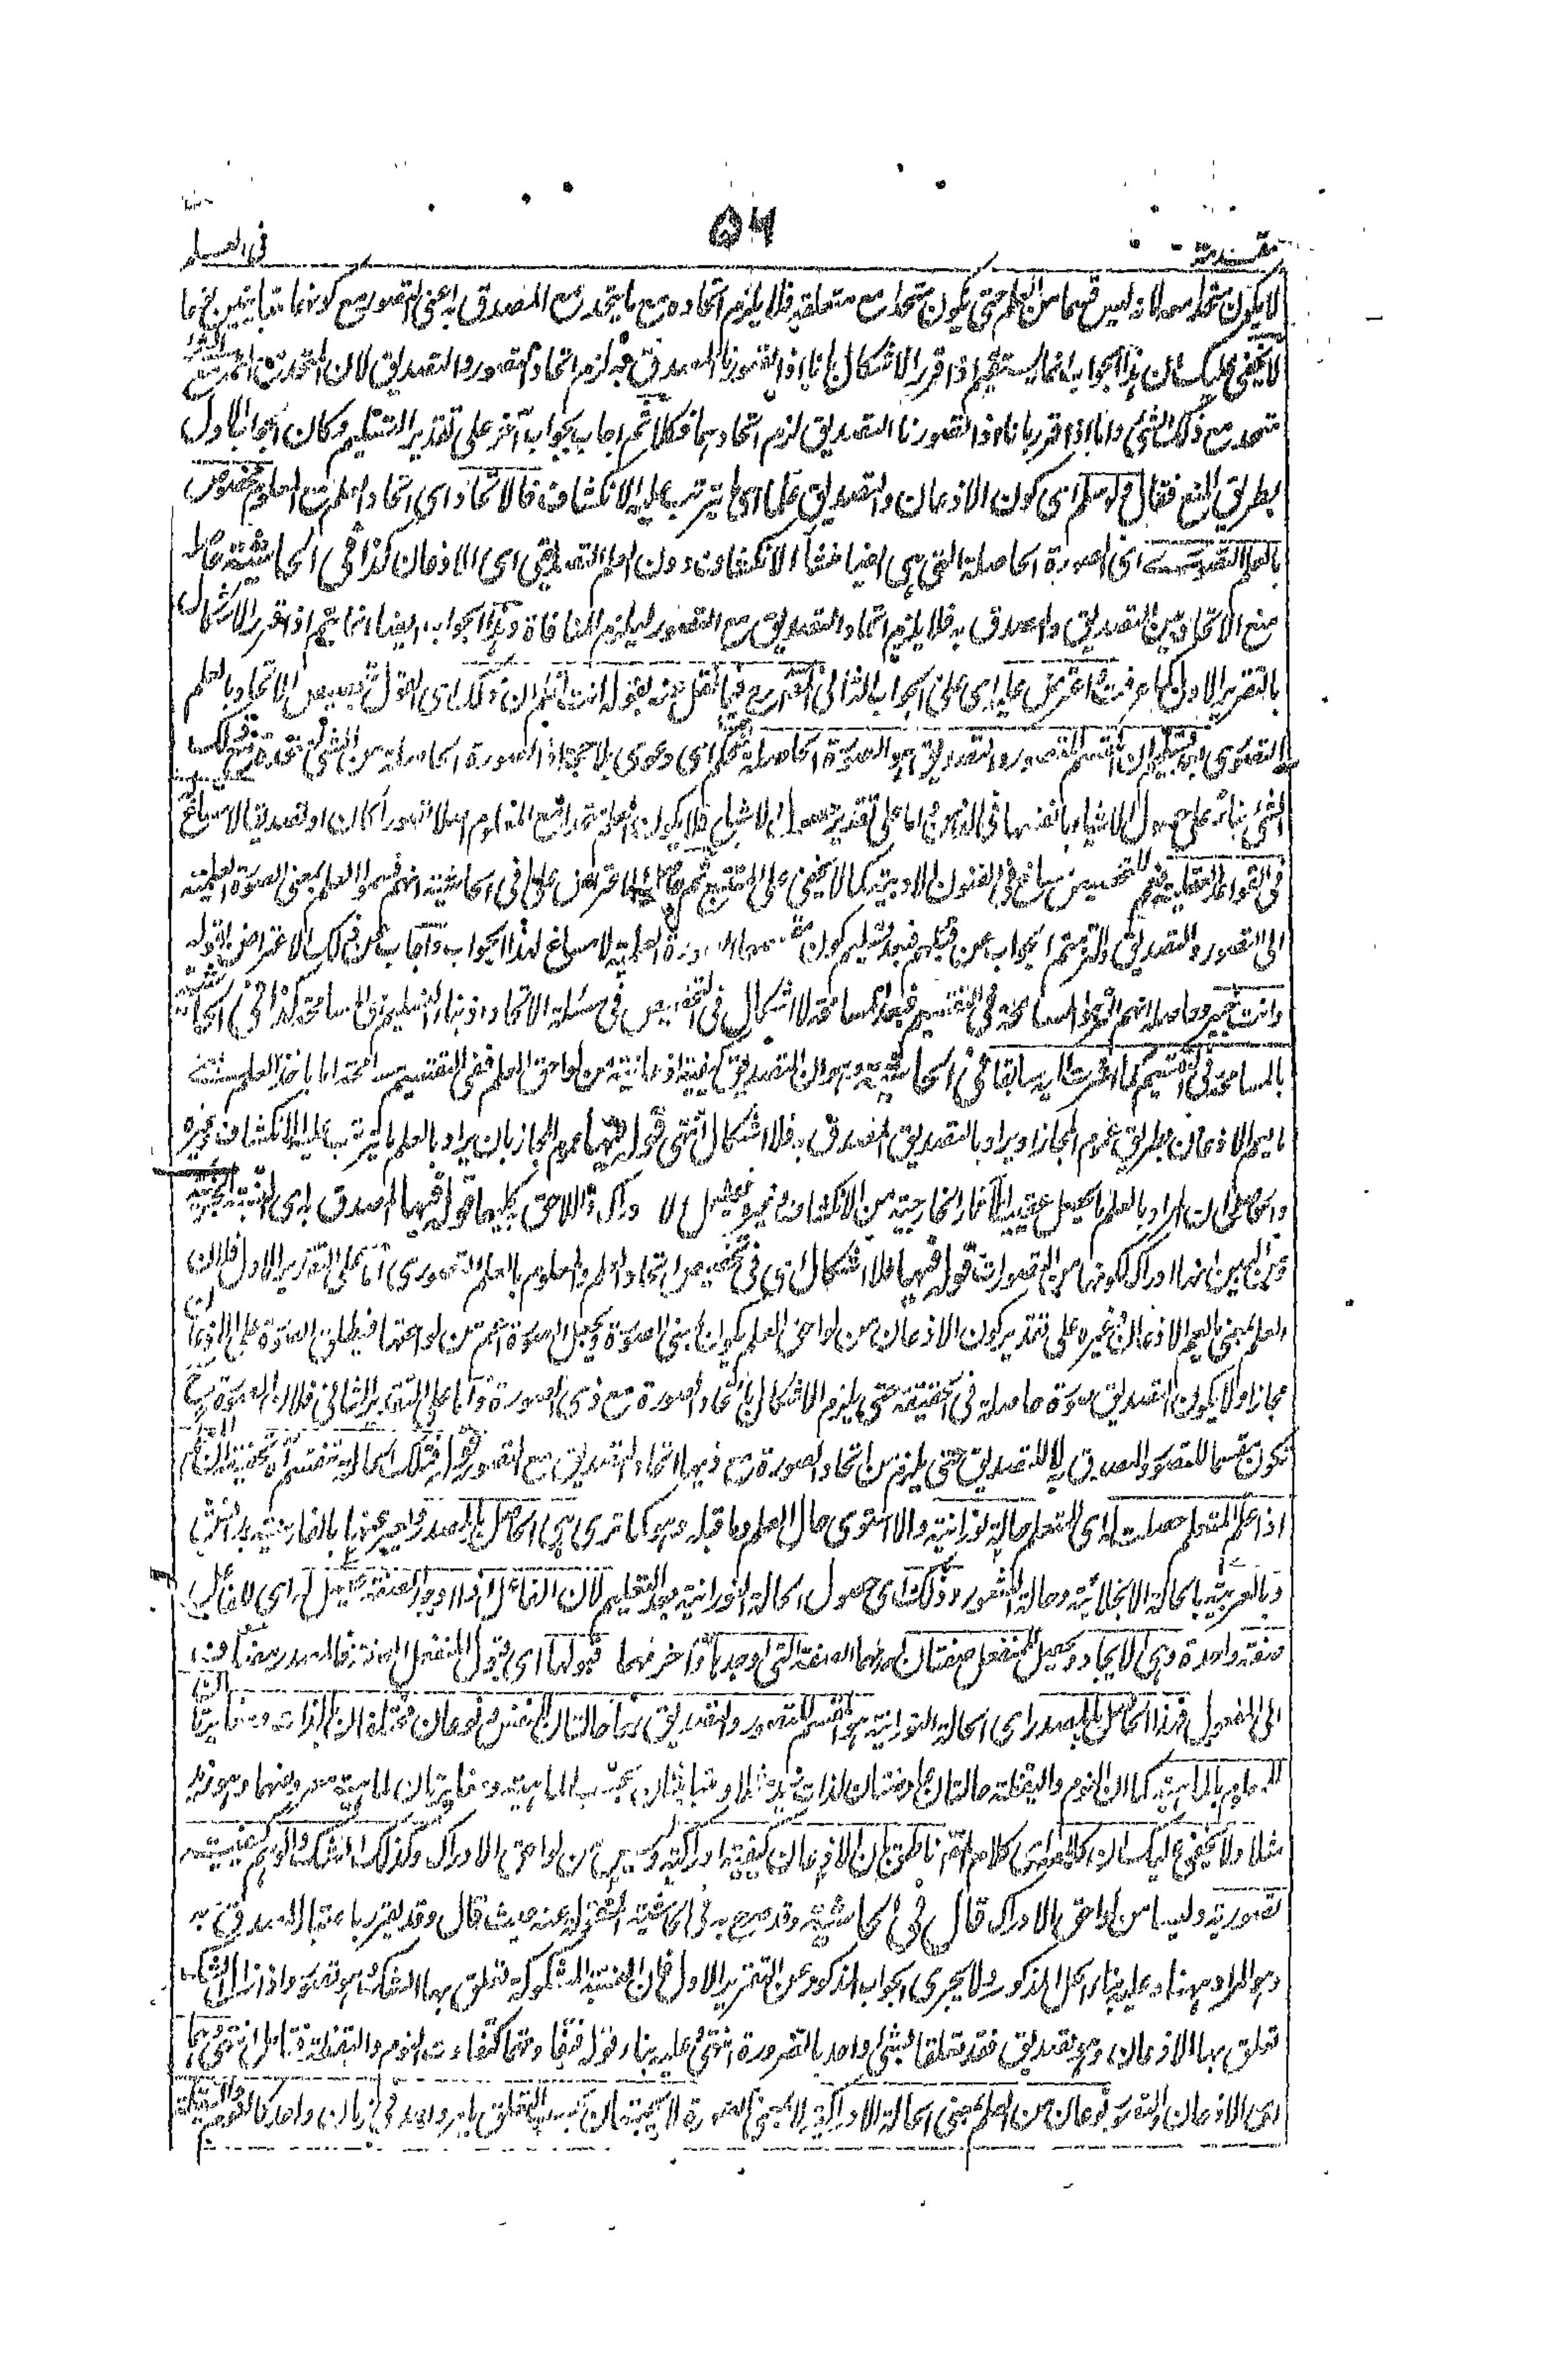 ۵۶
مقدمة
فى العلم
لا يكون متحدا معه لانه ليس قسما من العلم حتى يكون متحدا مع متعلقه فلا يلزم اتحاده مع ما يتحد مع المصدق به اعنى التصور مع كونهما متباينين
لا يخفى عليك ان هذا الجواب انما يستقيم اذا قرر الاشكال بانا اذا تصورنا المصدق به لزم اتحاد التصور والتصديق لان المتحد مع
متحد مع ذلك الشئ واما اذا قرر بانا اذا تصورنا التصديق لزم اتحادهما فكلا ثم اجاب بجواب آخر على تقدير التسليم وكان الجواب الاول
بطريق المنع فقال ولو سلم اى كون الاذعان والتصديق علما اى ما يترتب عليه الانكشاف فالاتحاد اى اتحاد العلم مع المعلوم مخصوص
بالعلم التصورى اى الصورة الحاصلة التى هى ايضا منشأ الانكشاف دون العلم التصديقى اى الاذعان كذا فى الحاشية حاصله
منع الاتحاد بين التصديق والمصدق به فلا يلزم اتحاد التصديق مع التصور ليلزم المنافاة وهذا الجواب ايضا انما يتم اذا قرر الاشكال
بالتقرير الاول كما عرفت ثم اعترض عليه اى على الجواب الثانى فيما نقل عنه بقوله انت تعلم ان ذلك اى القول بتخصيص الاتحاد بالعلم
التصورى بعد تسليم ان المقسم للتصور والتصديق هو الصورة الحاصلة تحكم اى دعوى بلا حجة اذ الصورة الحاصلة من الشئ متحدة مع ذلك
الشئ بناء على حصول الاشياء بانفسها فى الذهن اما على تقدير حصول الاشباح فلا يكون العلم متحدا مع المعلوم اصلا تصورا كان او تصديقا
فى القواعد العقلية نعم التخصيص سائغ فى الفنون الادبية كما لا يخفى على المتتبع ثم حاصل الاعتراض على ما فى الحاشية انهم قسموا العلم بمعنى الصورة العلمية
الى التصور والتصديق والتزمتم الجواب عن قبلهم فبعد تسليم كون الصورة العلمية لا مساغ لهذا الجواب واجاب عن ذلك الاعتراض بقوله
وانت خبير وحاصله انهم التزموا المسامحة فى التقسيم فبعد المسامحة لا اشكال فى التخصيص فى مسئلة الاتحاد اذ بناء التقسيم على المسامحة كذا فى الحاشية
بالمسامحة فى التقسيم كما اشرت اليه سابقا فى الحاشية وهو ان التصديق كيفية اذعانية من لواحق العلم ففى التقسيم مسامحة اما باخذ العلم بمعنى
ما يعم الاذعان بطريق عموم المجاز او يراد بالتصديق المصدق به فلا اشكال انتهى قوله فيها عموم المجاز بان يراد بالعلم ما يترتب عليه الانكشاف وغيره
والحاصل ان المراد بالعلم ما يحصل عقيبه الآثار الخارجية من الانكشاف وغيره فيشمل الادراك واللاحق كليهما قوله فيها المصدق به اى النسبة الخبرية
ومن البين انها ادراك لكونها من التصورات قوله فيها فلا اشكال اى فى تخصيص اتحاد العلم والمعلوم بالعلم التصورى اما على التقدير الاول فلان
العلم بمعنى ما يعم الاذعان وغيره على تقدير كون الاذعان من لواحق العلم يكون بمعنى الصورة ويجعل الصورة اعم من لواحقها فيطلق الصورة على الاذعان
مجازا ولا يكون التصديق صورة حاصلة فى الحقيقة حتى يلزم الاشكال باتحاد الصورة مع ذى الصورة واما على التقدير الثانى فلان الصورة
تكون مقسما للتصور والمصدق به لا للتصديق حتى يلزم من اتحاد الصورة مع ذيها اتحاد التصديق مع التصور قوله فتلك الحالة تنقسم آه تحقيق المقام
اذا علم المتعلم حصلت له اى للمتعلم حالة نورانية والا استوى حال العلم وما قبله وهو كما ترى هى الحاصل بالمصدر ويعبر عنها بالفارسية بدانش
وبالعربية بالحالة الانجلائية وحالة الشعور وذلك اى حصول الحالة النورانية بعد التعليم لان الفاعل اذا اوجد الصفة يحصل له اى للفاعل
صفة واحدة وهى الايجاد ويحصل للمنفعل صفتان احدهما الصفة التى اوجدها وآخرهما قبولها اى قبول المنفعل الصفة فالمصدر مضاف
الى المفعول فهذا الحاصل بالمصدر اى الحالة النورانية هو المقسم للتصور والتصديق فهما حالتان للنفس نوعان مختلفان بالذات ومتغايران
للمعلوم بالماهية كما ان النوم واليقظة حالتان عارضتان لذات زيد مثلا ومتباينتان بحسب الماهية ومغايرتان لماهية معروضهما وهو زيد
مثلا ولا يخفى عليك ان كلامه اى كلام المص ناطق بان الاذعان كيفية ادراكية وليس من لواحق الادراك وكذلك الشك والوهم كيفية
تصورية وليسا من لواحق الادراك قال فى الحاشية وقد صرح به فى الحاشية المنقولة عنه حيث قال وقد يقرر باعتبار المصدق به
وهو المراد ههنا وعليه بناء الحل المذكور ولا يجرى الجواب المذكور عن التقرير الاول فان النسبة المشكوكة تتعلق بها الشك وهو تصور واذا زال الشك
تعلق بها الاذعان وهو تصديق فقد تعلقا بشئ واحد بالضرورة انتهى وعليه بناء قوله فتفاوتهما كتفاوت النوم واليقظة فتأمل انتهى وهما
اى الاذعان والتصور نوعان من العلم بمعنى الحالة الادراكية لا بمعنى الصورة لا يجتمعان بحسب التعلق بامر واحد فى زمان واحد كالنوم واليقظة